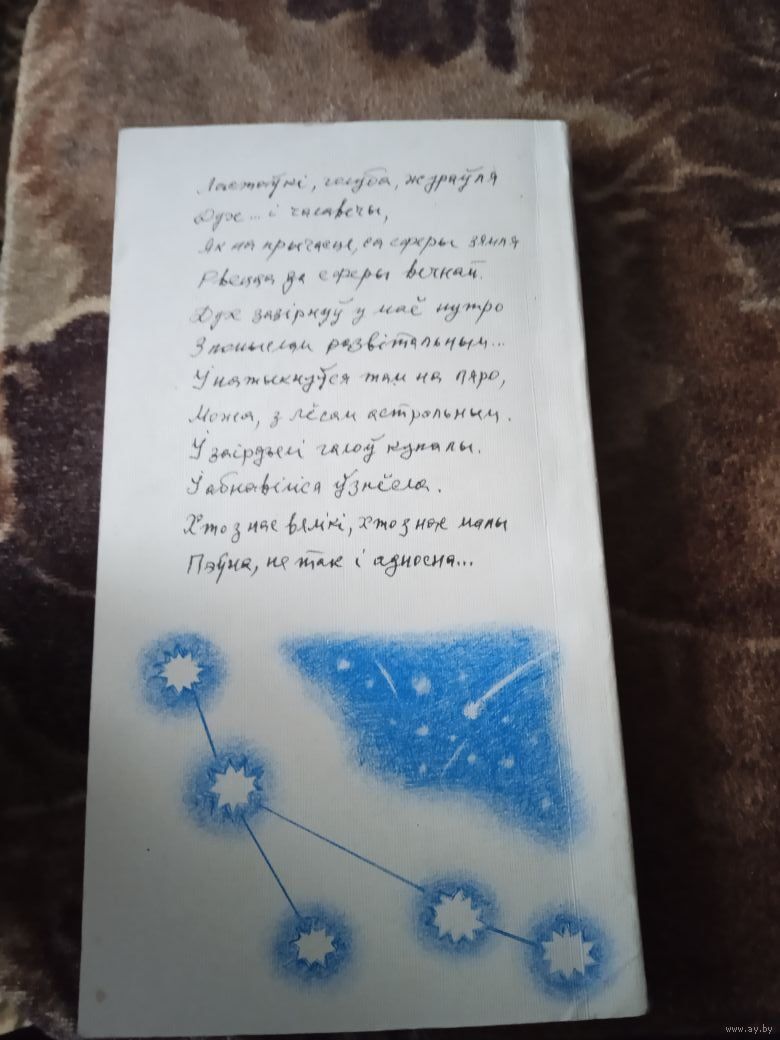 Ластаўкі, голуба, жураўля
Дух... і чалавечы,
Як на прычасце, са сферы зямля
Рвецца да сферы вечнай.
Дух зазірнуў у маё нутро
З помыслам развітальным...
Ўнатыкнуўся там на пяро,
Можа, з лёсам астральным.
У сузір'і галоў купалы.
І абнавіліся ўзнёсла.
Хто знае вялікі, хто знае малы
Пэўна, не так і адносна...
www.ay.by